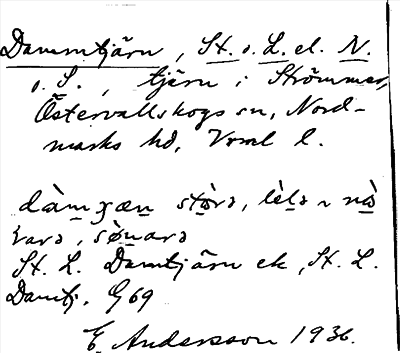 Dammtjärn, St. o. L. el. N.
o. S., tjärn i Strömmer,
Östervallskogs sn, Nord-
marks hd, Vrml l.
dàmχæn stòrə, lèlə ~ nò
rarə, sønarə
St. L. Damtjärn ek, St. L.
Damtj. G 69
E. Andersson 1936.